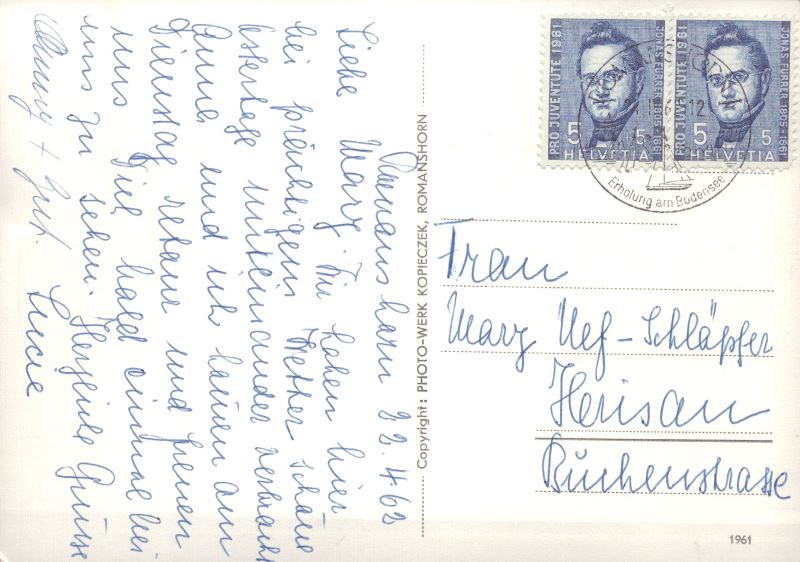 Romanshorn 22.4.62
Liebe Mary. Wir haben hier
bei prächtigem Wetter schöne
Ostertage miteinander verbracht
Anna und ich kehren am
Dienstag retour und freuen
uns Dich bald einmal bei
uns zu sehen. Herzliche Grüsse
Lucie
Anny + Gust.
Copyright: PHOTO-WERK KOPIECZEK, ROMANSHORN
PRO JUVENTUTE 1961
JONAS FURRER 1805-1861
5 5
HELVETIA
PRO JUVENTUTE 1961
JONAS FURRER 1805-1861
5 5
HELVETIA
Erholung am Bodensee
Frau
Mary Nef-Schläpfer
Herisau
Buchenstrasse
1961